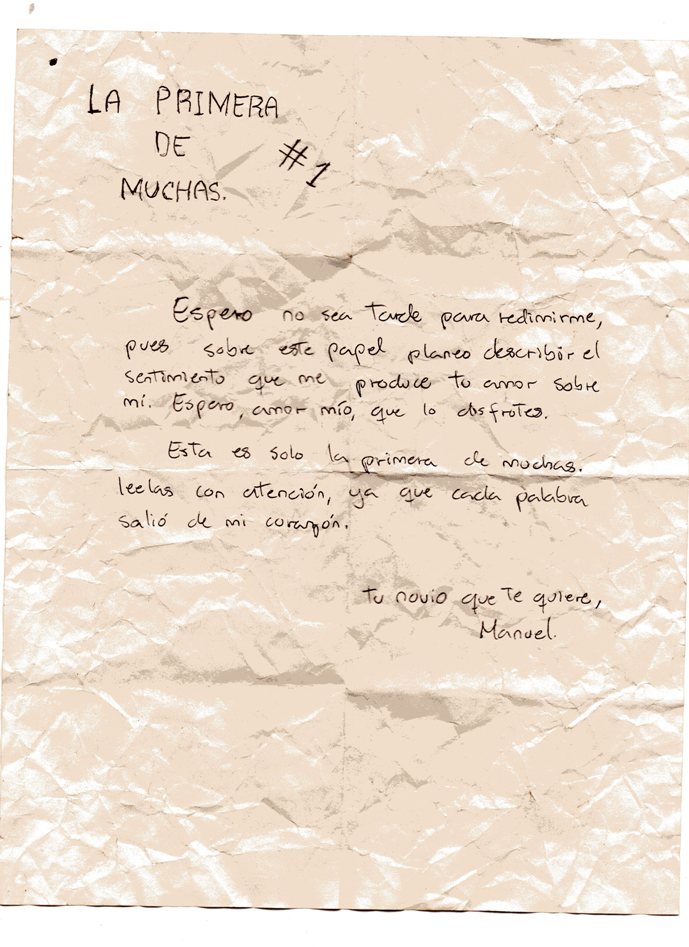 LA PRIMERA
DE
#1
MUCHAS.
Espero no sea tarde para redimirme,
pues sobre este papel planeo describir el
sentimiento que me produce tu amor sobre
mí. Espero, amor mío, que lo disfrutes.
Esta es solo la primera de muchas.
leelas con atención, ya que cada palabra
salió de mi corazón.
tu novio que te quiere,
Manuel.